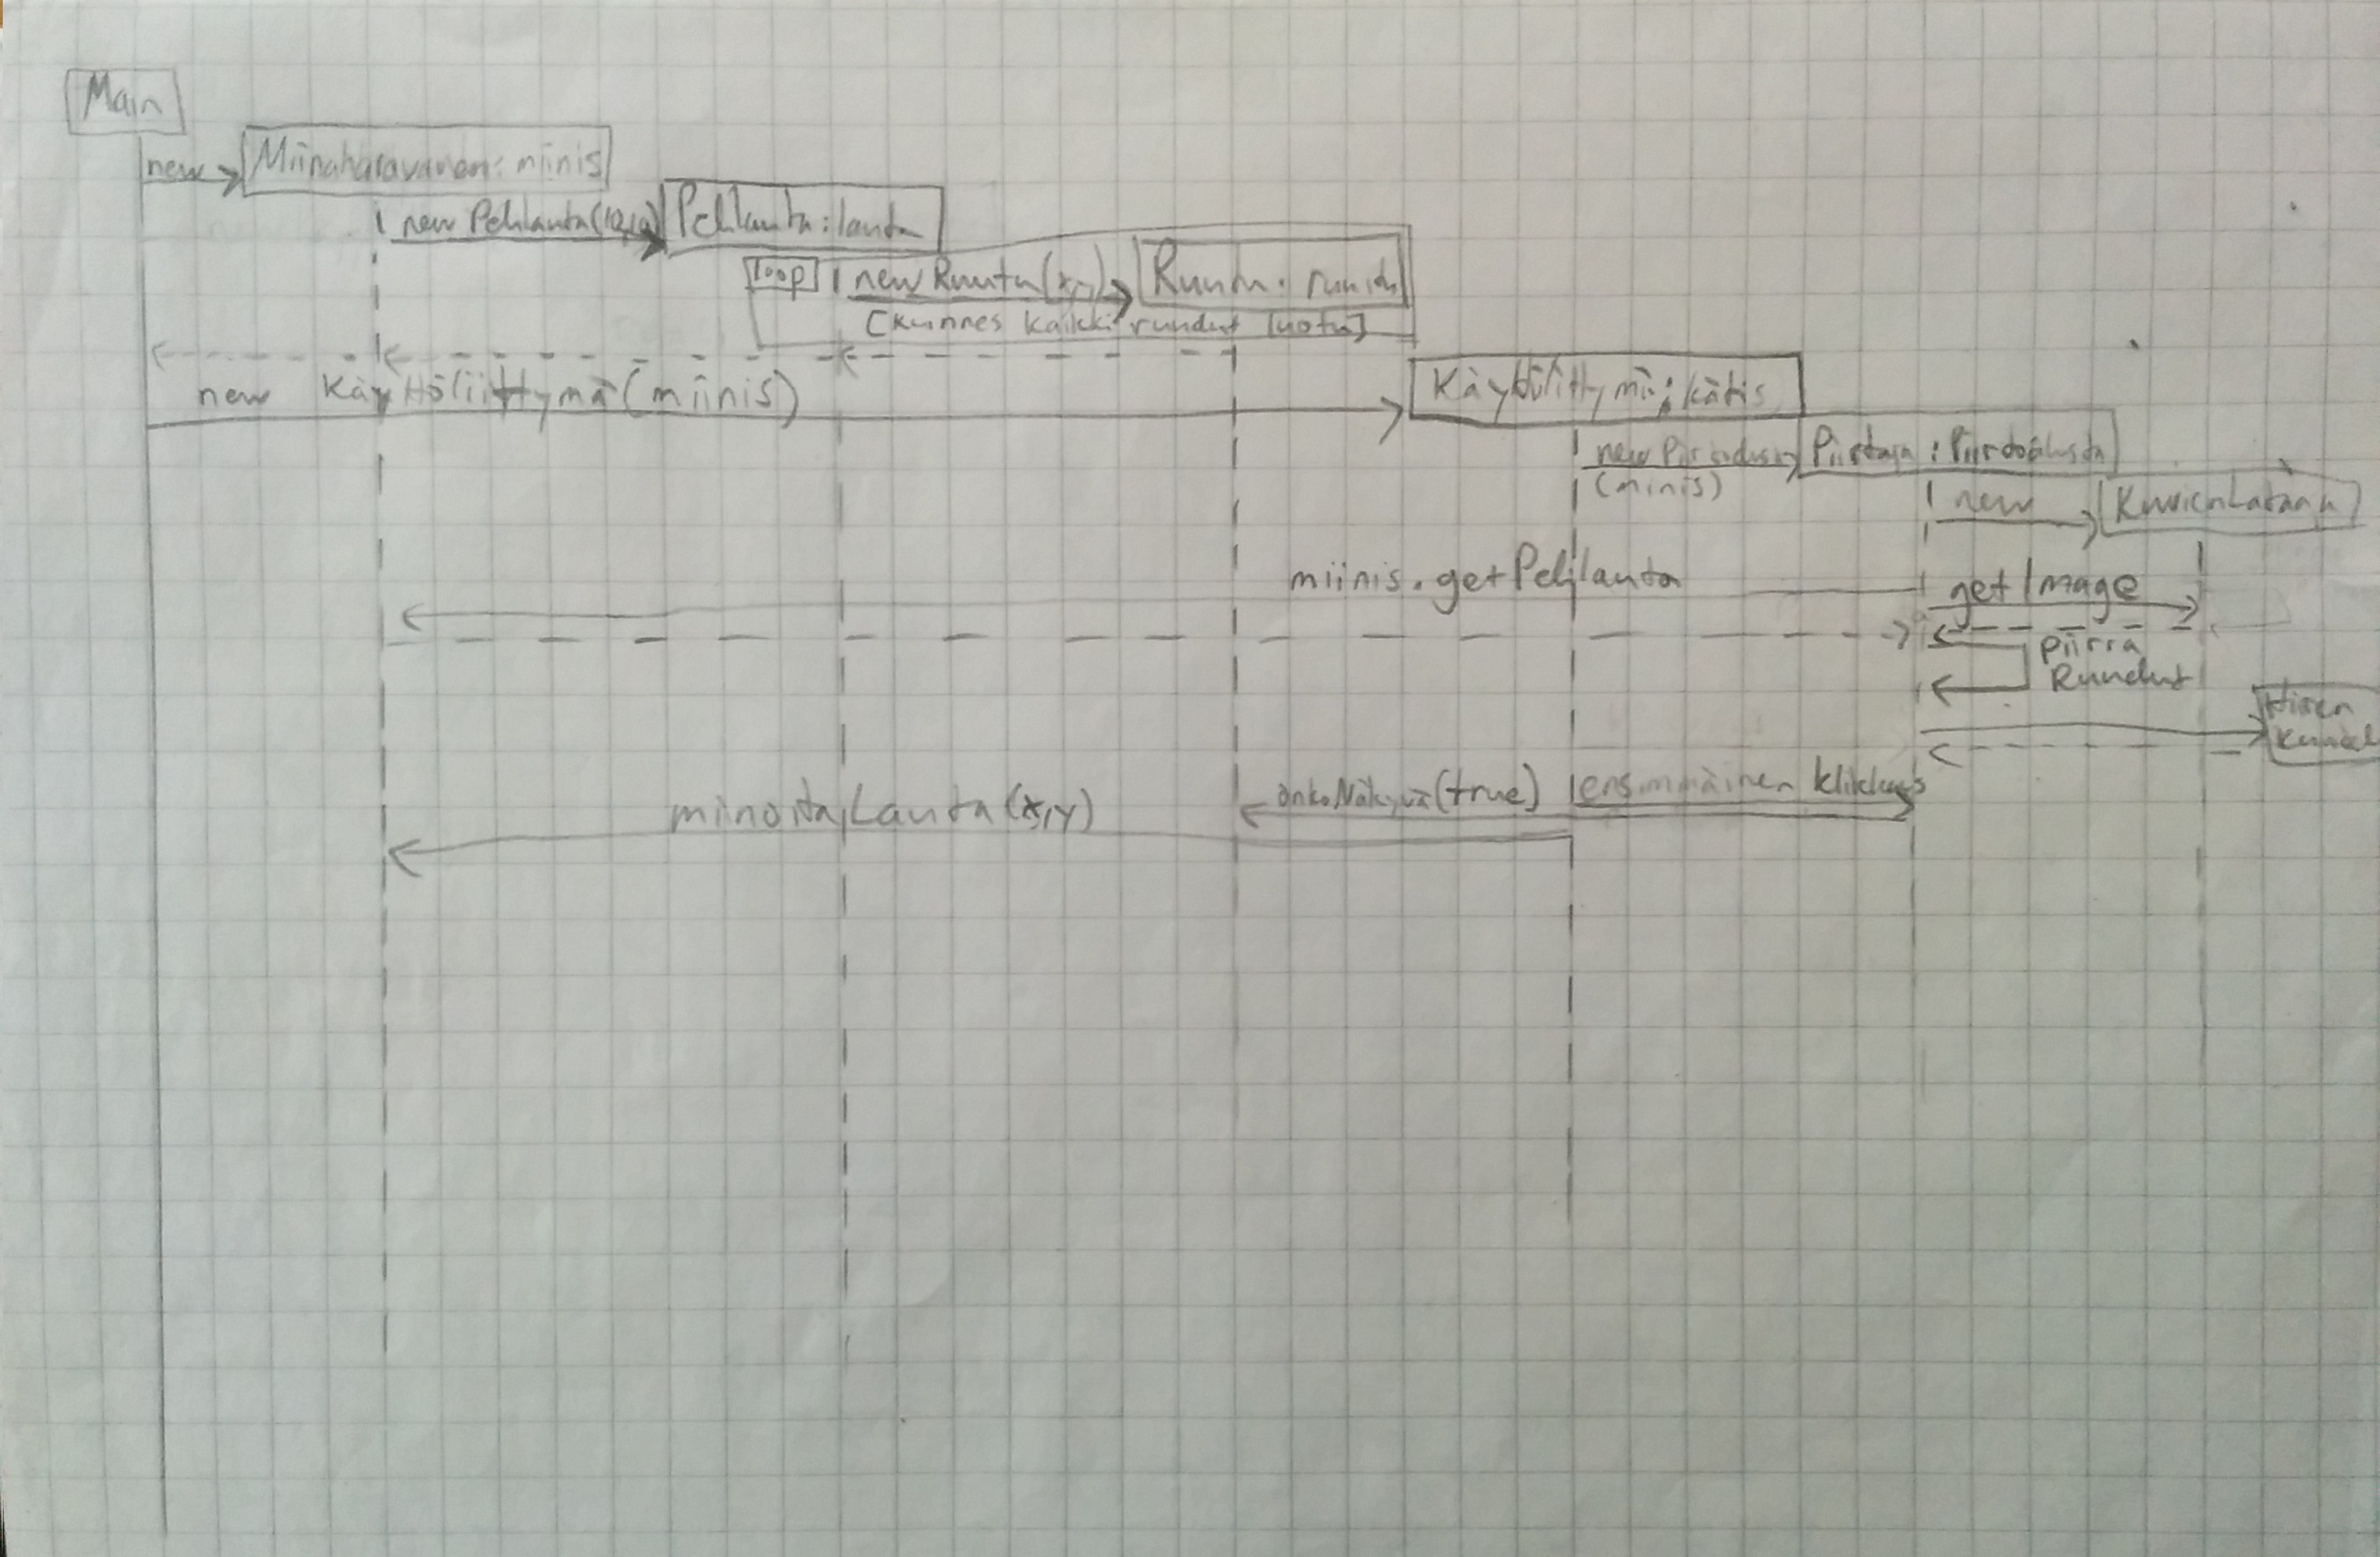 Main
new
Miinaharavanen: miinis
new Pelilauta(10,10)
Pelilauta: lauta
loop
new Ruutu(x,y)
Ruutu:
[kunnes kaikki ruudut luotu]
new Käyttöliittymä(miinis)
Käyttöliittymä: kätis
new
(miinis)
: Piirtoalusta
new
KuvienLataaja
miinis.getPelilauta
getImage
piirrä
Ruudut
Hiiren
onkoNäkyvä(true)
ensimmäinen klikkaus
miinoitaLauta(x,y)